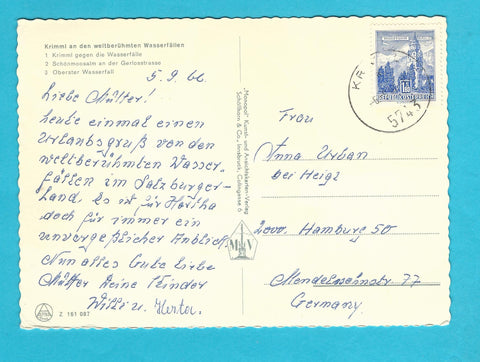 Krimml an den weltberühmten Wasserfällen
1 Krimml gegen die Wasserfälle
2 Schönmoosalm an der Gerlosstrasse
3 Oberster Wasserfall
5.9.66
Liebe Mutter!
Heute einmal einen
Urlaubsgruß von den
weltberühmten Wasser-
fällen im Salzburger-
Land. Es ist für Hertha
doch für immer ein
unvergeßlicher Anblick.
Nun alles Gute liebe
Mutter Deine Kinder
Willi u. Herta.
Z 161 087
"Monopol" Kunst- und Ansichtskarten-Verlag
Schöllhorn & Co., Innsbruck,
M V
5743
REPUBLIK ÖSTERREICH
Frau
Anna Urban
bei Heigl
2000 Hamburg 50
Mendelssohnstr. 77
Germany.